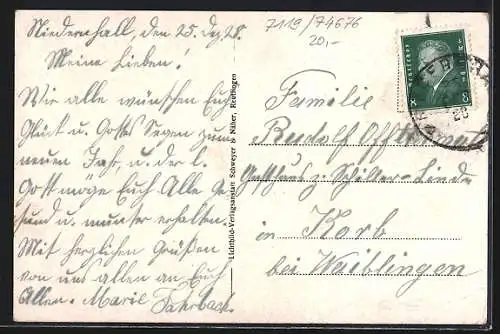 Niedernhall, den 25. Dez. 28.
Meine Lieben!
Wir alle wünschen Euch
Glück u. Gottes Segen zum
neuen Jahr, u. der l.
Gott möge Euch Alle ge-
sund u. munter erhalten.
Mit herzlichen Grüßen
von uns allen an Euch
Allen. Marie Fahrbach.
Lichtbild-Verlagsanstalt Schweyer & Näher, Reutlingen
7119/74676
20,-
Familie
Rudolf
Gasthaus z. Schiller-Linde
in Korb
bei Waiblingen
8 8